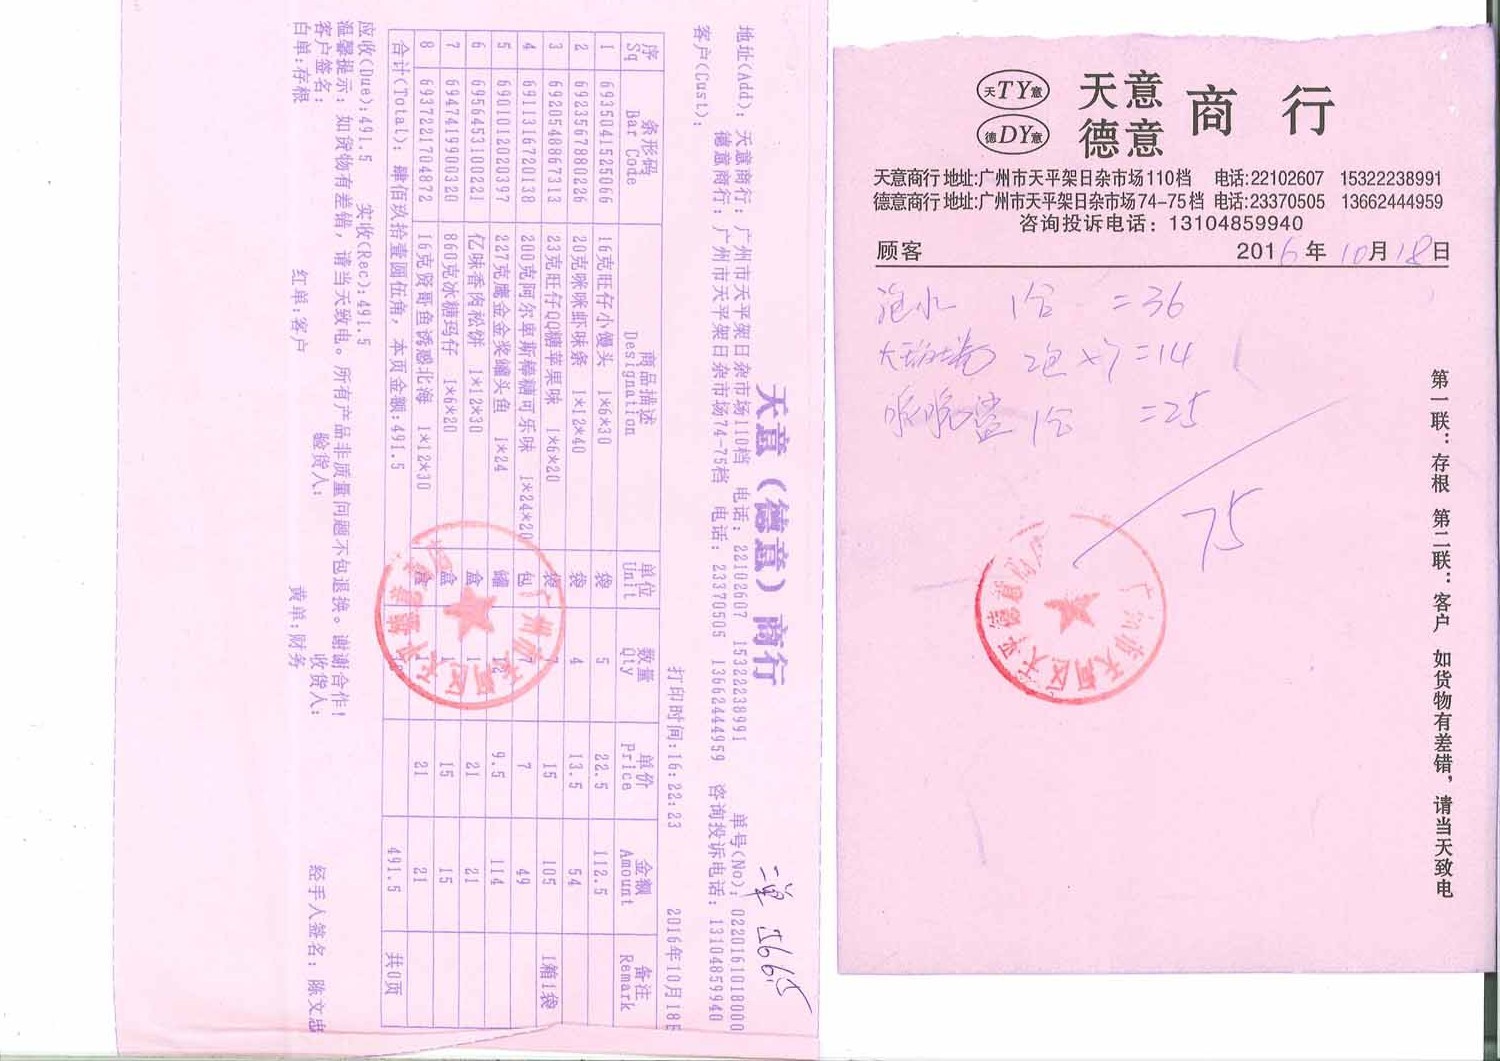 天意（德意）商行
二单 566.5
单号(No)：0220161018000
地址(Add)：天意商行：广州市天平架日杂市场110档 电话：22102607 15322238991
德意商行：广州市天平架日杂市场74-75档 电话：23370505 13662444959 咨询投诉电话：13104859940
客户(Cust)：
打印时间:16:22:23 2016年10月18日
序 条形码 商品描述 单位 数量 单价 金额 备注
Sq Bar Code Designation Unit Qty price Amount Remark
1 6935041525066 16克旺仔小馒头 1*6*30 袋 5 22.5 112.5
2 6923567880226 20克咪咪虾味条 1*12*40 袋 4 13.5 54
3 6920548867313 23克旺仔QQ糖苹果味 1*6*20 袋 7 15 105 1箱1袋
4 6911316720138 200克阿尔卑斯棒糖可乐味 1*24*20 包 7 7 49
5 6901012020397 227克鹰金金浆罐头鱼 1*24 罐 12 9.5 114
6 6956453100221 亿味香肉松饼 1*12*30 盒 1 21 21
7 6947419900320 860克冰糖玛仔 1*6*20 盒 1 15 15
8 6937221704872 16克贤哥鱼诱惑北海 1*12*30 盒 1 21 21
合计(Total)：肆佰玖拾壹圆伍角，本页金额:491.5 491.5 共0页
应收(Due):491.5 实收(Rec):491.5
温馨提示：如货物有差错，请当天致电。所有产品非质量问题不包退换。谢谢合作！
客户签名： 验货人： 收货人： 经手人签名：陈文忠
白单:存根 红单:客户 黄单:财务
天TY意 天意
德DY意 德意
商行
天意商行 地址:广州市天平架日杂市场110档 电话:22102607 15322238991
德意商行 地址:广州市天平架日杂市场74-75档 电话:23370505 13662444959
咨询投诉电话：13104859940
顾客 2016年10月18日
泡水 1合 =36
2包×7=14
1合 =25
75
第一联：存根 第二联：客户 如货物有差错，请当天致电